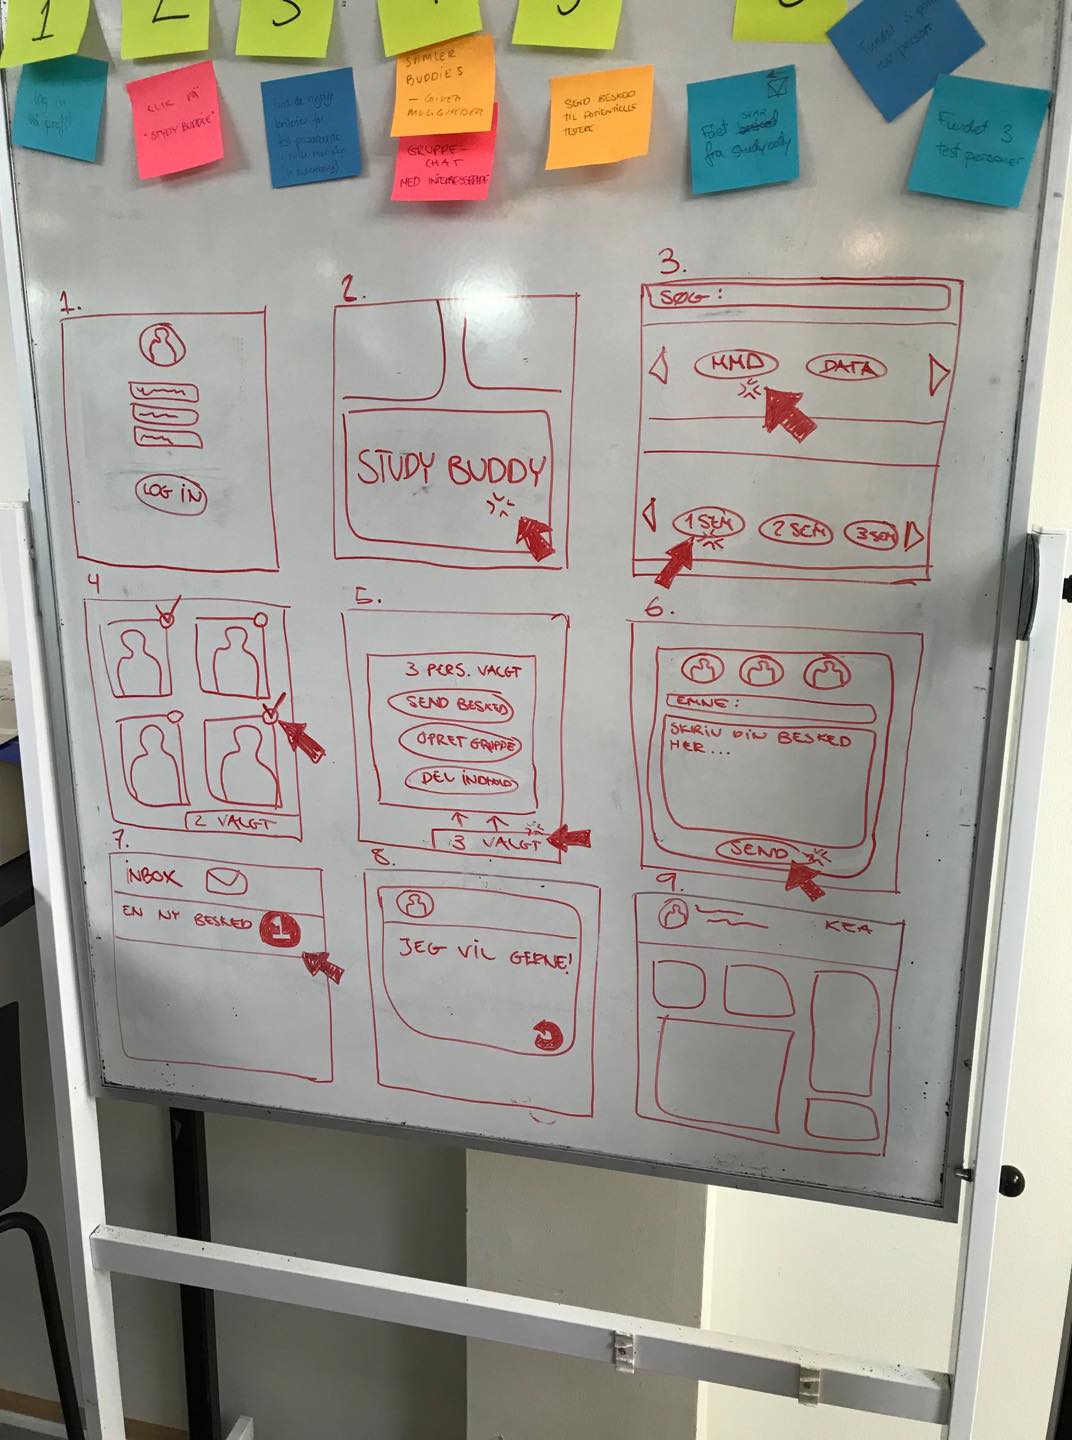 1
2
3
LOG IN
CLIK PÅ
"STUDY BUDDIE"
SAMLER
BUDDIES
— GIVER
MULIGHEDER
GRUPPE-
CHAT
MED INTERESSEREDE
SEND BESKED
TIL POTENTIELLE
TESTERE
SVAR
Fået
fra studybuddy
Fundet 3
test personer
1.
LOG IN
2.
STUDY BUDDY
3.
SØG:
MMD
DATA
1 SEM
2 SEM
3 SEM
4
2 VALGT
5.
3 PERS. VALGT
SEND BESKED
OPRET GRUPPE
DEL INDHOLD
3 VALGT
6.
EMNE:
SKRIV DIN BESKED
HER...
SEND
7.
INBOX
EN NY BESKED
1
8.
JEG VIL GERNE!
9.
KEA